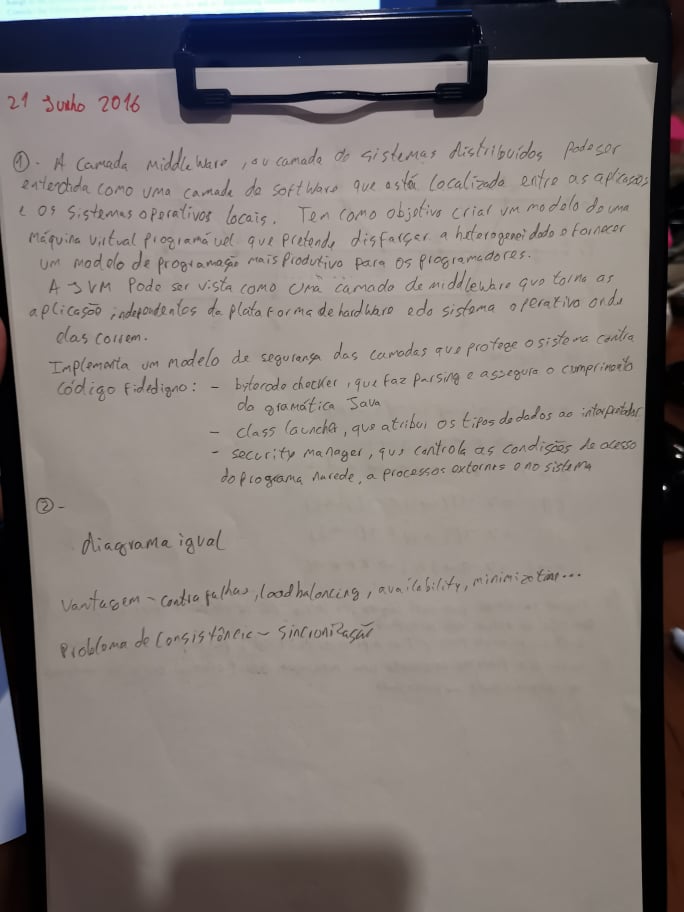 21 Junho 2016
①. A camada middleware, ou camada de sistemas distribuidos pode ser
entendida como uma camada de software que está localizada entre as aplicações
e os sistemas operativos locais. Tem como objetivo criar um modelo de uma
máquina virtual programável que pretende disfarçar a heterogeneidade e fornecer
um modelo de programação mais produtivo para os programadores.
A JVM Pode ser vista como uma camada de middleware que torna as
aplicação independentes da plataforma de hardware e do sistema operativo onde
elas correm.
Implementa um modelo de segurança das camadas que protege o sistema contra
código fidedigno: - bytecode checker, que faz parsing e assegura o cumprimento
da gramática Java
- class launcher, que atribui os tipos de dados ao interpretador
- security manager, que controla as condições de acesso
do programa na rede, a processos externos e no sistema
② -
diagrama igual
Vantagem - contra falhas, load balancing, availability,
Problema de Consistência - sincronização